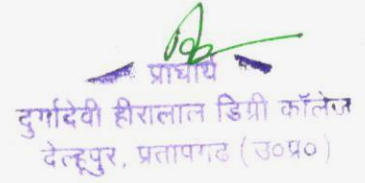 प्राचार्य
दुर्गादेवी हीरालाल डिग्री कॉलेज
देल्हूपुर, प्रतापगढ (उ०प्र०)